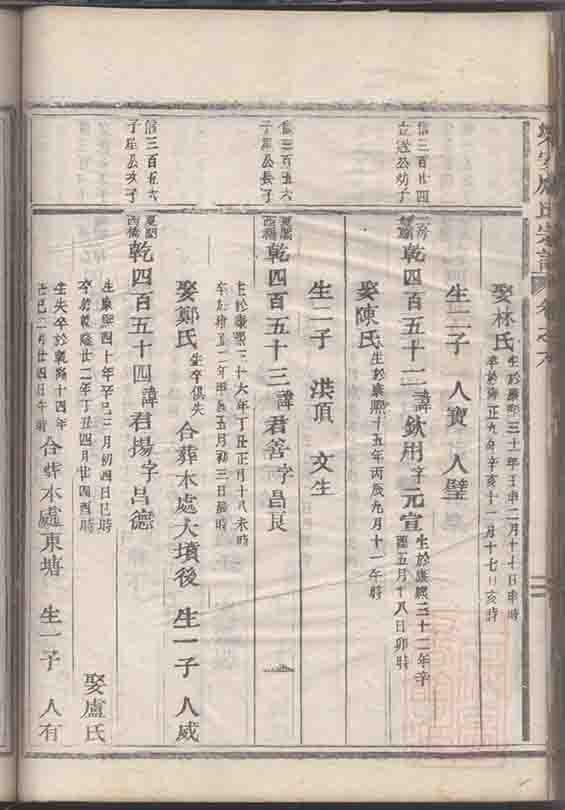 盧氏宗譜 卷之六
娶林氏 生於康熙三十一年壬申二月十七日申時
卒於雍正九年辛亥十一月十七日亥時
生二子 人寶 人璧
信三百廿四
立達公幼子
乾四百五十二 諱欽用 字元宣 生於康熙三十二年
五月十八日卯時
娶陳氏 生於康熙十五年丙辰九月十一午時
生二子 洪頂 文生
信三百五六
子星公長子
乾四百五十三 諱君善 字昌良
生於康熙三十六年丁丑正月十八未時
五月初三日辰時
娶鄭氏 生卒俱失 合葬本處大墳後 生一子 人威
信三百五六
子星公次子
乾四百五十四 諱君揚 字昌德
生康熙四十年辛巳三月初四日巳時
卒於乾隆廿二年丁丑四月廿四酉時
娶盧氏
生失卒於乾隆十四年
己巳二月廿四日午時
合葬本處東塘 生一子 人有